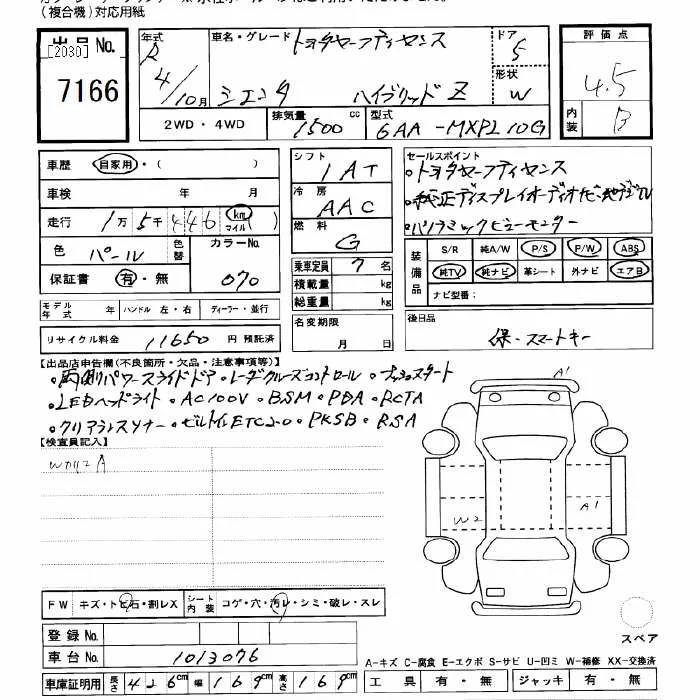 (複合機)対応用紙
出品No.
[2030]
7166
年式 R 4/10月
車名・グレード トヨタセーフティセンス
シエンタ ハイブリッド Z
ドア 5
形状 W
2WD・4WD
排気量 1500 cc
型式 6AA-MXPL10G
評価点 4.5
内装 B
車歴 自家用・( )
車検 年 月
走行 1万5千446 km (マイル)
色 パール 色替 カラーNo. 070
保証書 有・無
モデル年式 年 ハンドル 左・右 ディーラー・並行
リサイクル料金 11650 円 預託済
シフト 1AT
冷房 AAC
燃料 G
乗車定員 7 名
積載量 kg
総重量 kg
名変期限 月 日
セールスポイント
・トヨタセーフティセンス
・純正ディスプレイオーディオナビ・地デジTV
・パノラミックビューモニター
装備品 S/R 純A/W P/S P/W ABS
純TV 純ナビ 革シート 外ナビ エアB
ナビ型番:
後日品
保・スマートキー
【出品店申告欄(不良箇所・欠品・注意事項等)】
・両側パワースライドドア・レーダークルーズコントロール・プッシュスタート
・LEDヘッドライト・AC100V・BSM・PDA・RCTA
・クリアランスソナー・ビルトインETC2.0・PKSB・RSA
【検査員記入】
A
A1
W2
A1
FW キズ・トビ石・割レX シート内装 コゲ・穴・汚レ・シミ・破レ・スレ
登録No.
車台No. 1013076
車庫証明用 長さ 426cm 幅 169cm 高さ 169cm
スペア
A-キズ C-腐食 E-エクボ S-サビ U-凹ミ W-補修 XX-交換済
工具 有・無 ジャッキ 有・無